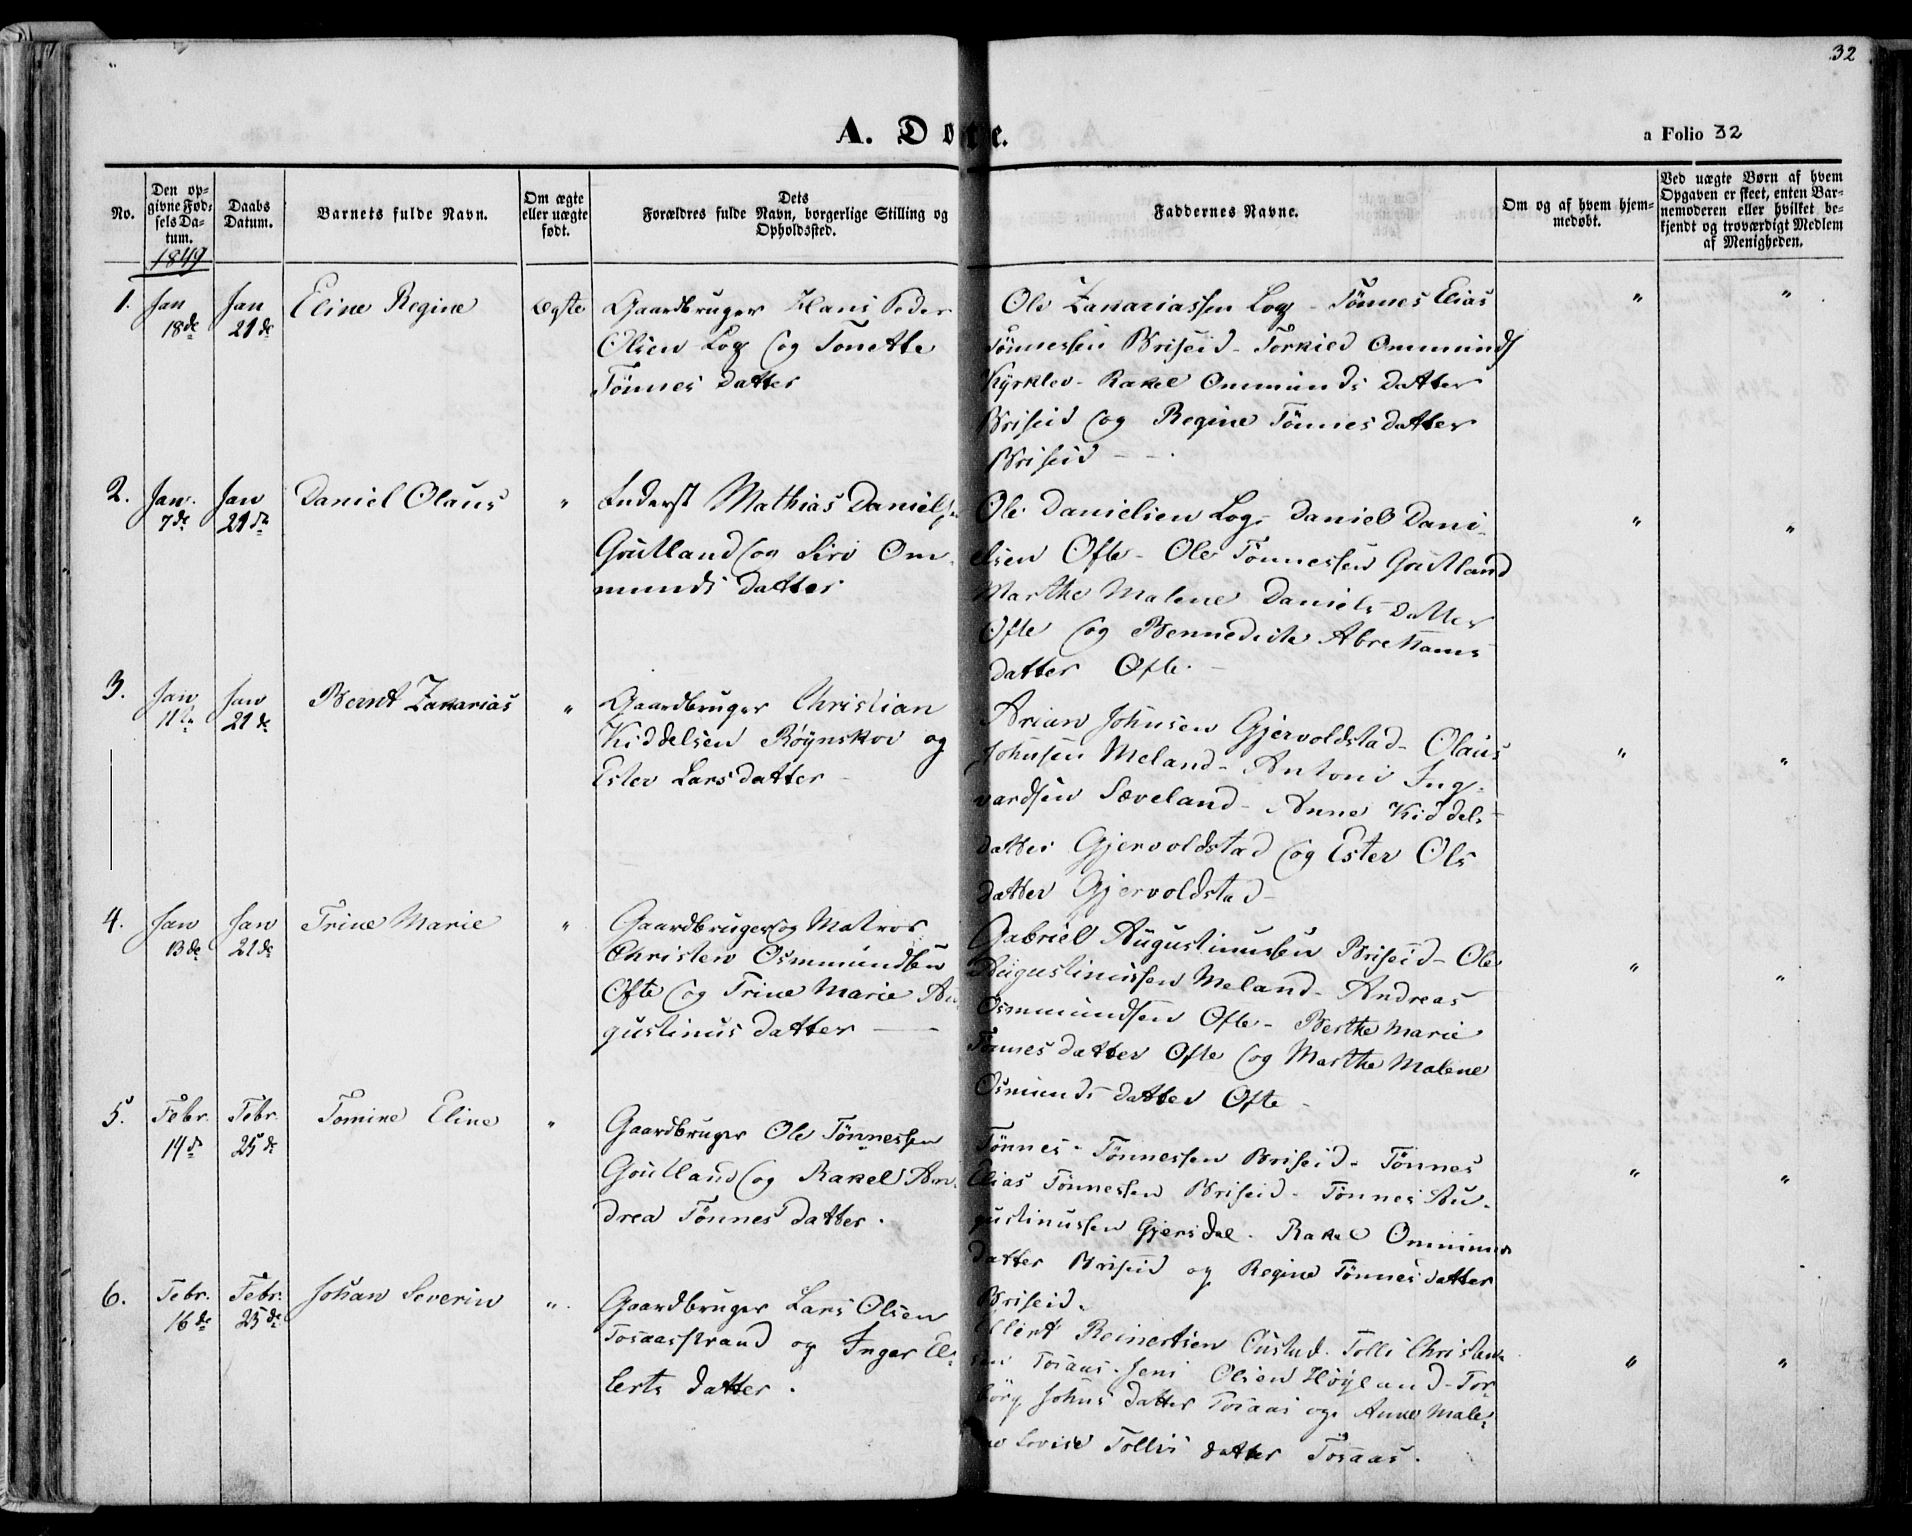 32
A. Døbte.
a Folio 32
No.
Den op-
givne Fød-
sels Da-
tum.
Daabs
Datum.
Barnets fulde Navn.
Om ægte
eller uægte
født.
Dets
Forældres fulde Navn, borgerlige Stilling og
Opholdssted.
Faddernes Navne.
Om og af hvem hjem-
medøbt.
Ved uægte Børn af hvem
Opgaven er skeet, enten Bar-
nemoderen eller hvilket be-
kjendt og troværdigt Medlem
af Menigheden.
1849
1. Jan 18de
Jan 21de
Eline Regine
Ægte
Gaardbruger Hans Peder
Olsen Log og Tonette
Tønnes datter
Ole Zakariassen Log - Tønnes Elias
Tønnessen Briseid - Torkied Ommunds
Kyrklev - Rakel Ommunds datter
Briseid og Regine Tønnes datter
Briseid
" "
2. Jan. 7de
Jan 21de
Daniel Olaus
"
Inderst Mathias Daniels
Goutland og Siri Om-
munds datter
Ole Danielsen Log - Daniel Dani-
elsen Ofte - Ole Tønnessen Goutland
Marthe Malene Daniels datter
Ofte og Bennedicte Abrehams
datter Ofte.
" "
3. Jan 11te
Jan 21de
Bernt Zakarias
"
Gaardbruger Christian
Kiddelsen Røynskov og
Ester Lars datter
Arian Johnsen Gjervoldstad - Olaus
Johnsen Meland - Antoni Ing-
vardsen Sæveland - Anne Kiddels
datter Gjervoldstad og Ester Ols
datter Gjervoldstad
" "
4. Jan 13de
Jan 21de
Trine Marie
"
Gaardbruger og Matros
Christen Osmundsen
Ofte og Trine Marie Au-
gustinus datter
Gabriel Augustinussen Briseid - Ole
Augustinussen Meland - Andreas
Osmmundsen Ofte - Berthe Marie
Tønnes datter Ofte og Marthe Malene
Osmunds datter Ofte
" "
5. Febr. 14de
Febr. 25de
Tomine Eline
"
Gaardbruger Ole Tønnessen
Goutland og Rakel An-
drea Tønnes datter.
Tønnes Tønnessen Briseid - Tønnes
Elias Tønnessen Briseid - Tønnes Au-
gustinussen Gjersdal - Rakel Ommunds
datter Briseid og Regine Tønnes datter
Briseid.
" "
6. Febr. 16de
Febr. 25de
Johan Severin
"
Gaardbruger Lars Olsen
Tosaasstrand og Inger El-
lerts datter.
Ellert Reinertsen - Tolli Christen-
sen Tosaas - Jens Olsen Høyland - Tor-
borg Johns datter Tosaas og Anne Male-
ne Lovise Tollis datter Tosaas.
" "